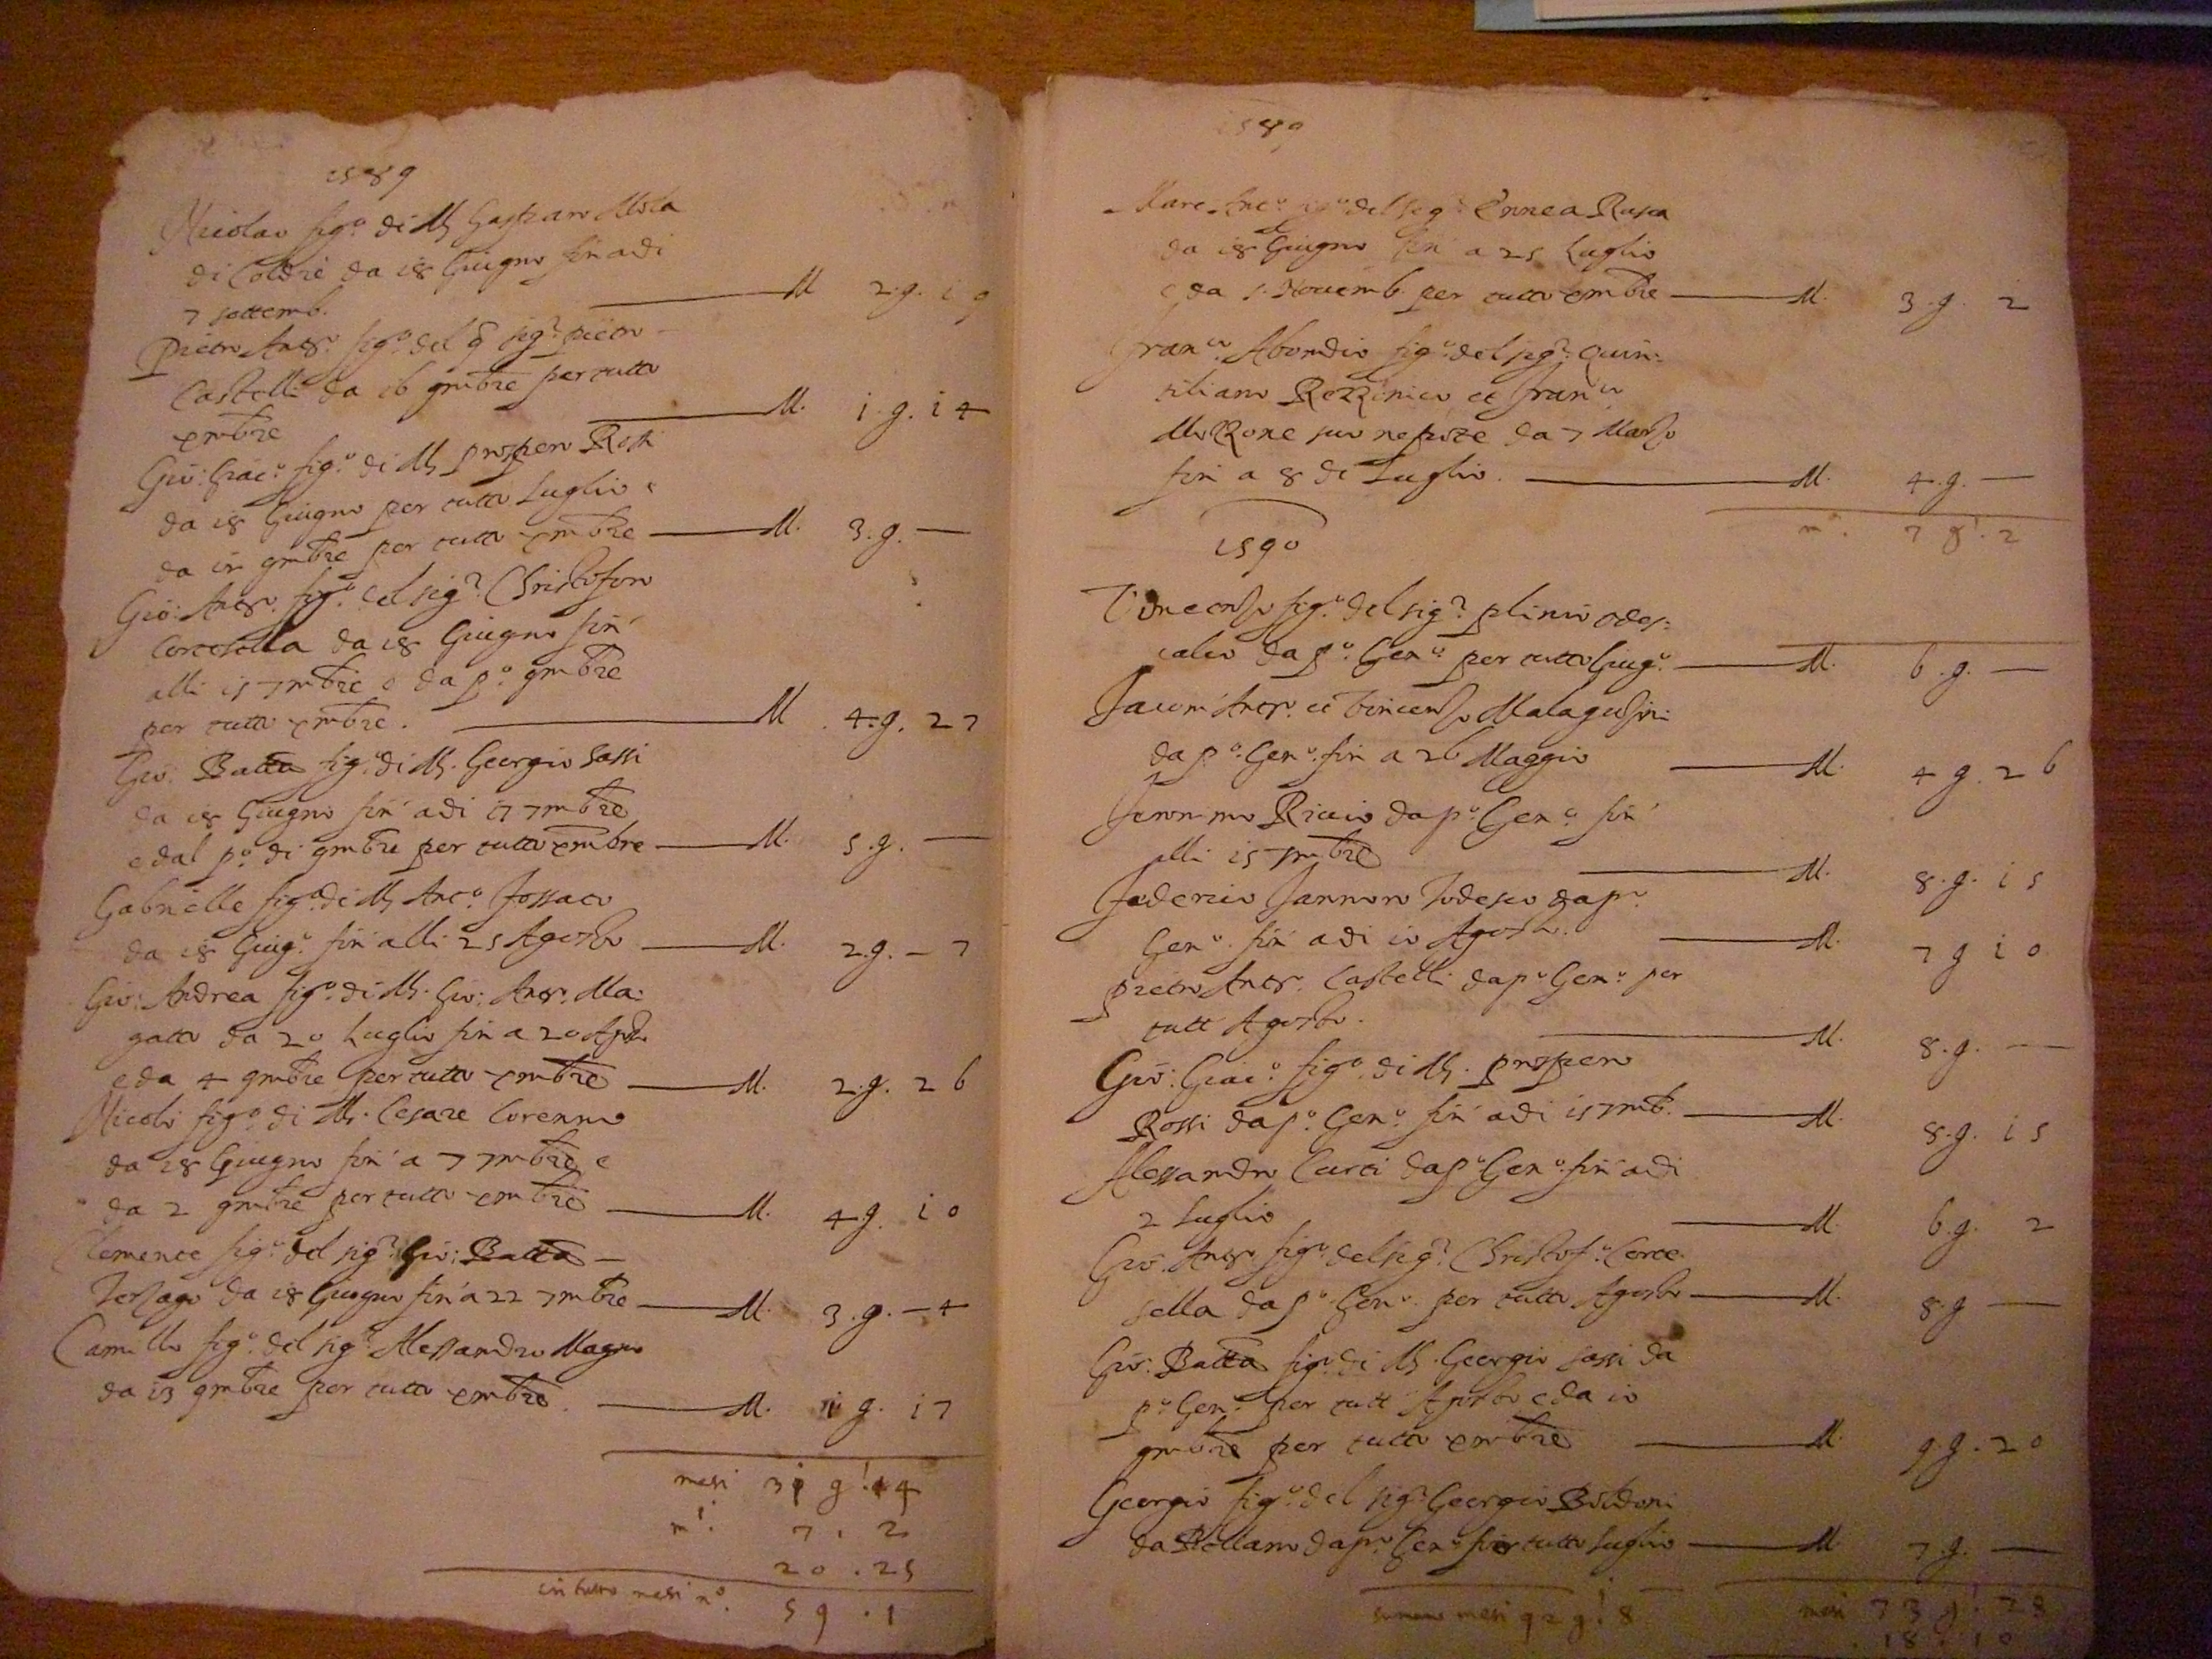 1589
Nicolao fig.o di M. Gasparo Mola
di Coldrè da 18 Giugno fin adi
7 settemb. M 2.g. 19
Pietro Anto. fig.o del q. sig.r pietro
Castelli da 16 9mbre per tutto
xmbre M. 1.g.14
Gio: Giac.o fig.o di M. prospero Rossi
da 18 Giugno per tutto Luglio e
da in 9mbre per tutto xmbre M. 3.g. —
Gio: Anto. fig.o del sig.r Christoforo
da 18 Giugno fin'
alli 15 7mbre e da p.o 9mbre
per tutto xmbre. M. 4.g. 27
Gio: Batta fig.o di M. Georgio Sassi
da 18 Giugno fin' adi 17 7mbre
e dal p.o di 9mbre per tutto xmbre M. 5.g. —
Gabrielle fig.o di M. Ant.o
da 18 Giug.o fin' alli 25 Agosto M. 2.g. – 7
Gio: Andrea fig.o di M. Gio: Anto. Ma:
gatto da 20 Luglio fin a 20
e da 4 9mbre per tutto xmbre M. 2.g. 26
Nicolò fig.o di M. Cesare Corenno
da 18 Giugno fin' a 7 7mbre e
da 2 9mbre per tutto xmbre M. 4 g. 10
Clemente fig.o del sig.r Gio: Batta
da 18 Giugno fin' a 22 7mbre M. 3.g. – 4
Camillo fig.o del sig.r Alessandro Magno
da 13 9mbre per tutto xmbre. M. 1 g. 17
mesi 31 g.i 14
m.i 7. 2
20.25
in tutto mesi n.o 59.1
1589
fig.o del sig.r Ennea Rusca
da 18 Giugno fin a 25 Luglio
e da 5. Novemb. per tutto xmbre M. 3.g. 2
Fran.co Abondio fig.o del sig.r Quin:
tiliano Rezzonico et Fran.co
suo nepote da 7 Marzo
fin a 8 di Luglio. M. 4.g. —
m.i 7 g.i 2
1590
Vincenzo fig.o del sig.r plinio odes:
calco da p.o Gen.o per tutto Giug.o M. 6.g. —
Anto. et Vincenzo
da p.o Gen.o fin a 26 Maggio M. 4 g. 26
Jeronimo Riccio da p.o Gen.o fin'
alli 15 7mbre M. 8.g. 15
Federico Todesco da p.o
Gen.o fin' adi 10 Agosto. M. 7 g 10
pietro Anto. Castelli da p.o Gen.o per
tutt Agosto. M. 8.g. —
Gio: Giac.o fig.o di M. prospero
Rossi da p.o Gen.o fin' adi 15 7mb. M. 8.g. 15
Alessandro Curti da p.o Gen.o fin' adi
2 Luglio M. 6.g. 2
Gio. Anto. fig.o del sig.r Christof.o
da p.o Gen.o per tutto Agosto M. 8.g —
Gio: Batta fig.o di M. Georgio Sassi da
p.o Gen.o per tutt Agosto e da 10
9mbre per tutto xmbre M. 9 g. 20
Georgio fig.o del sig.r Georgio Boldoni
da Bellano da p.o Gen.o per tutto Luglio M. 7 g. —
summa mesi 92 g.i 8
mesi 73 g.i 28
18.10